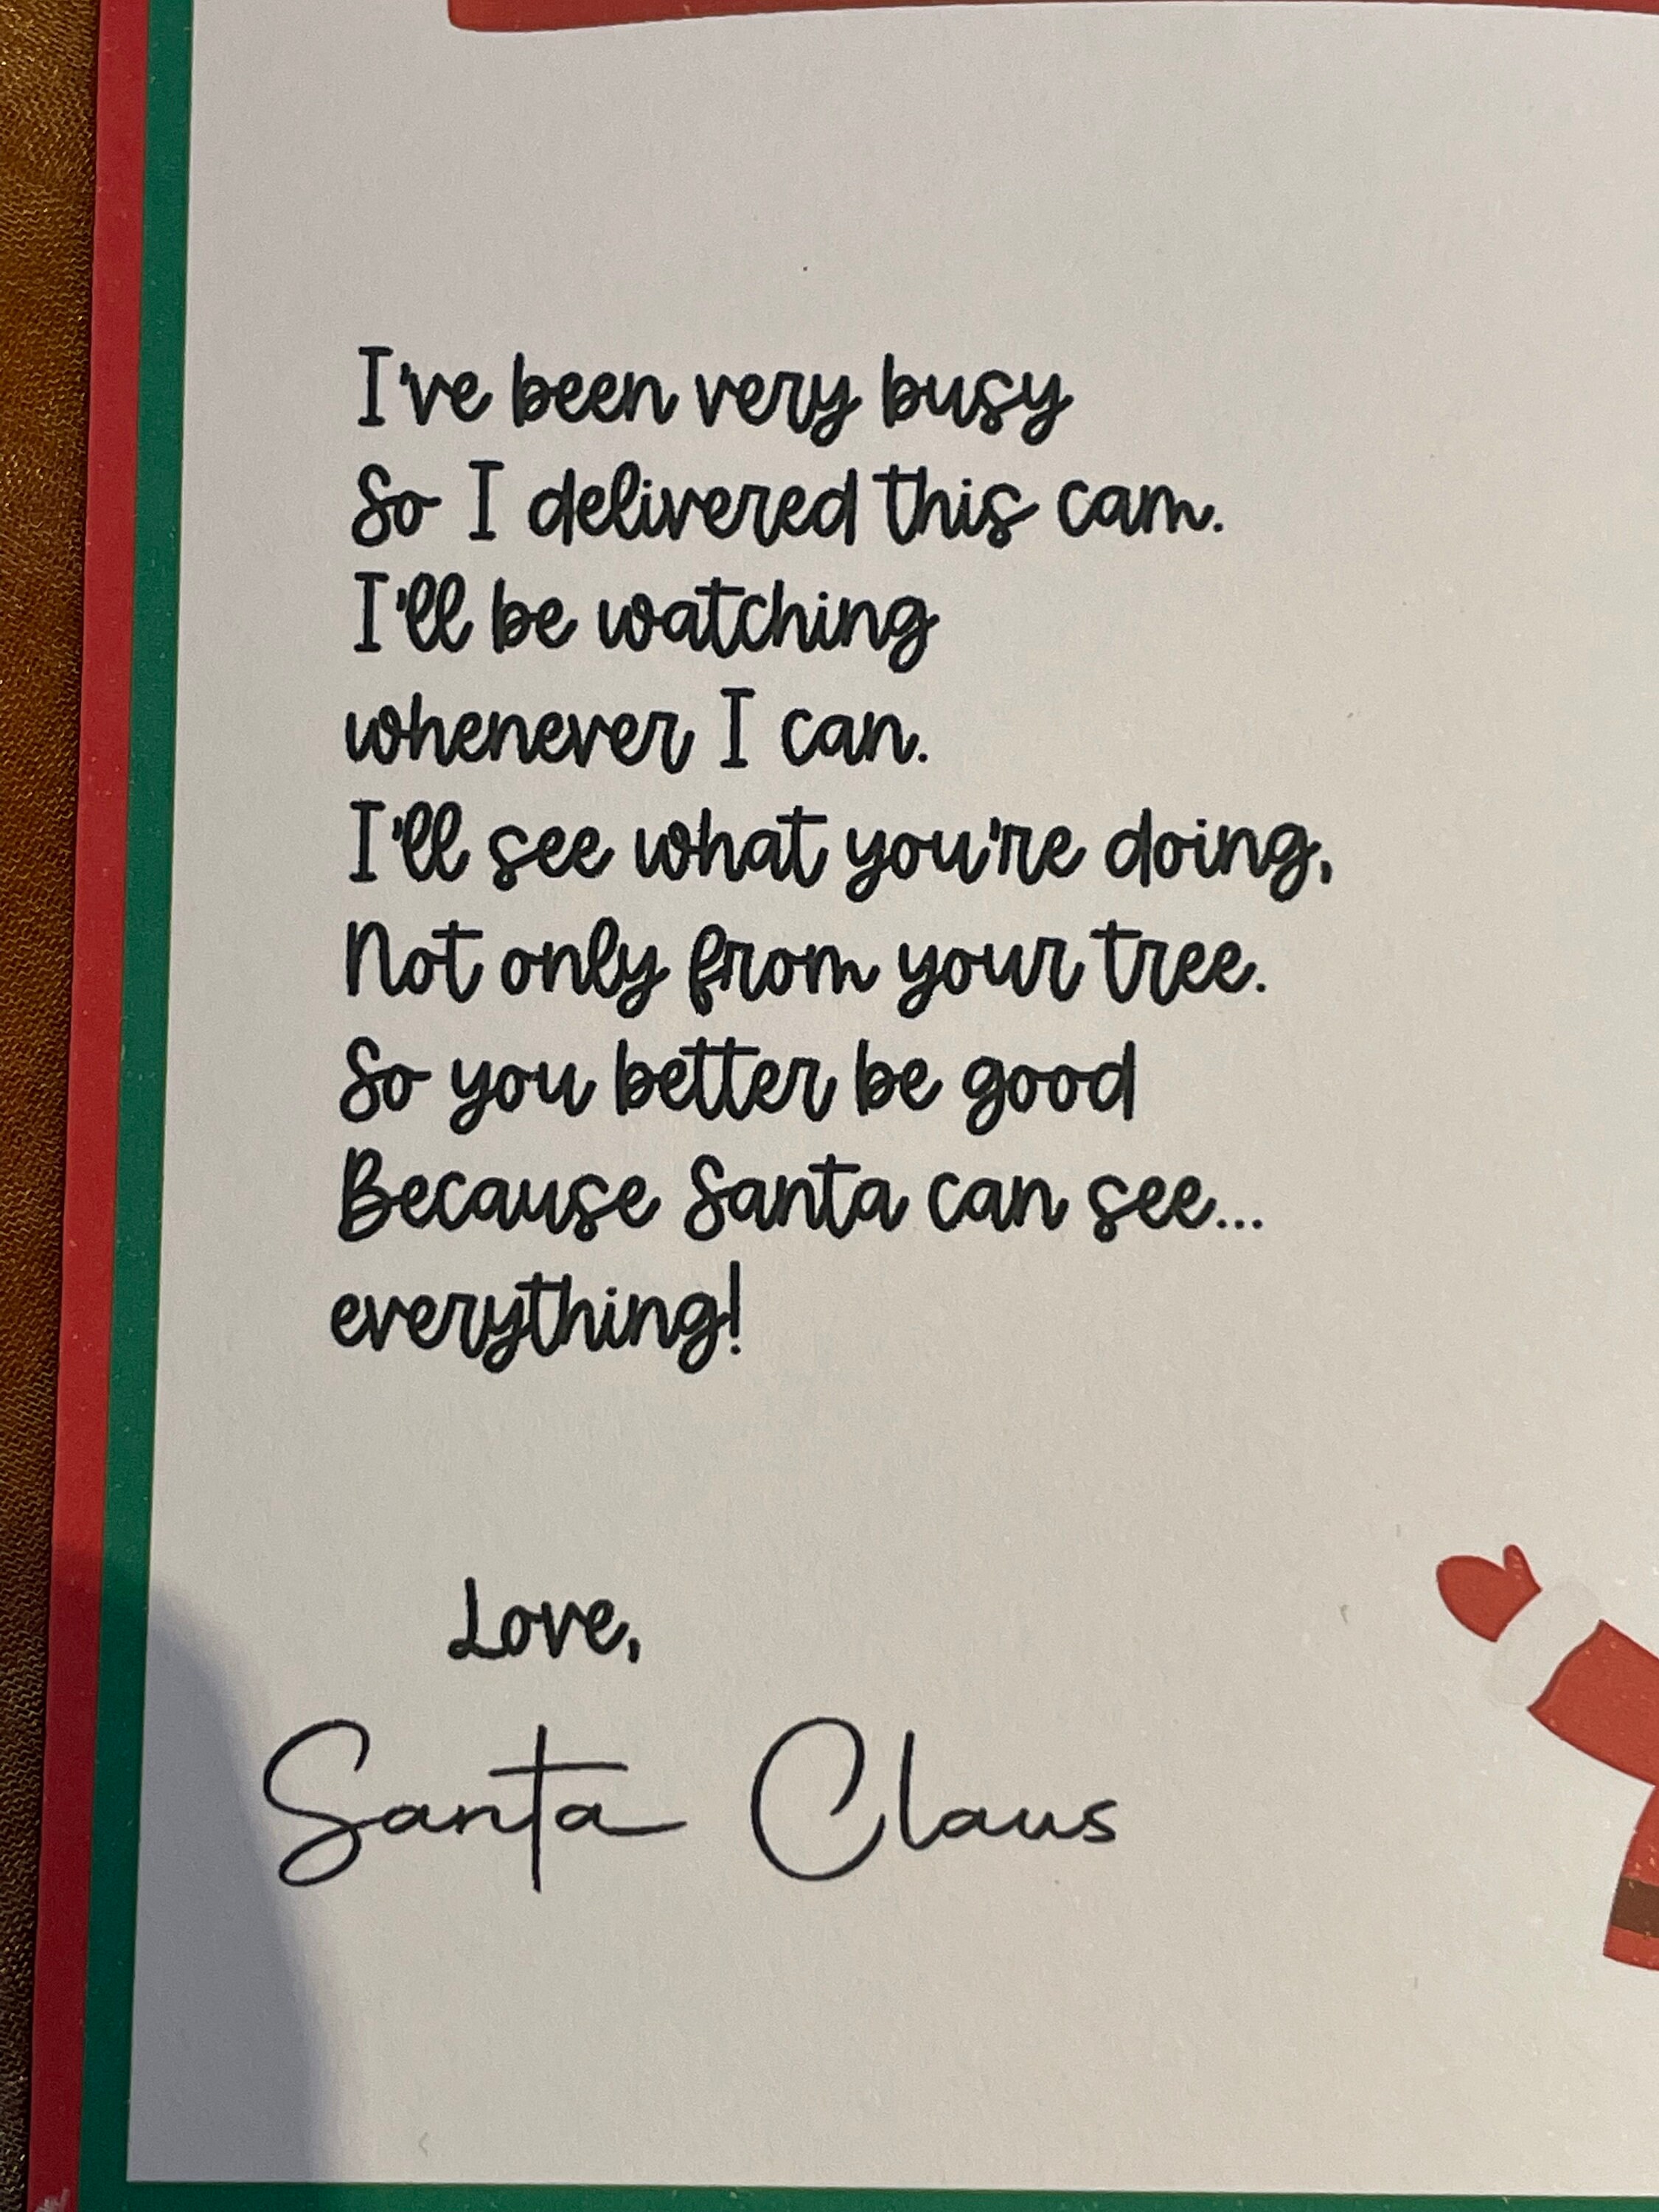 I've been very busy
So I delivered this cam.
I'll be watching
whenever I can.
I'll see what you're doing,
Not only from your tree.
So you better be good
Because Santa can see...
everything!
Love,
Santa Claus